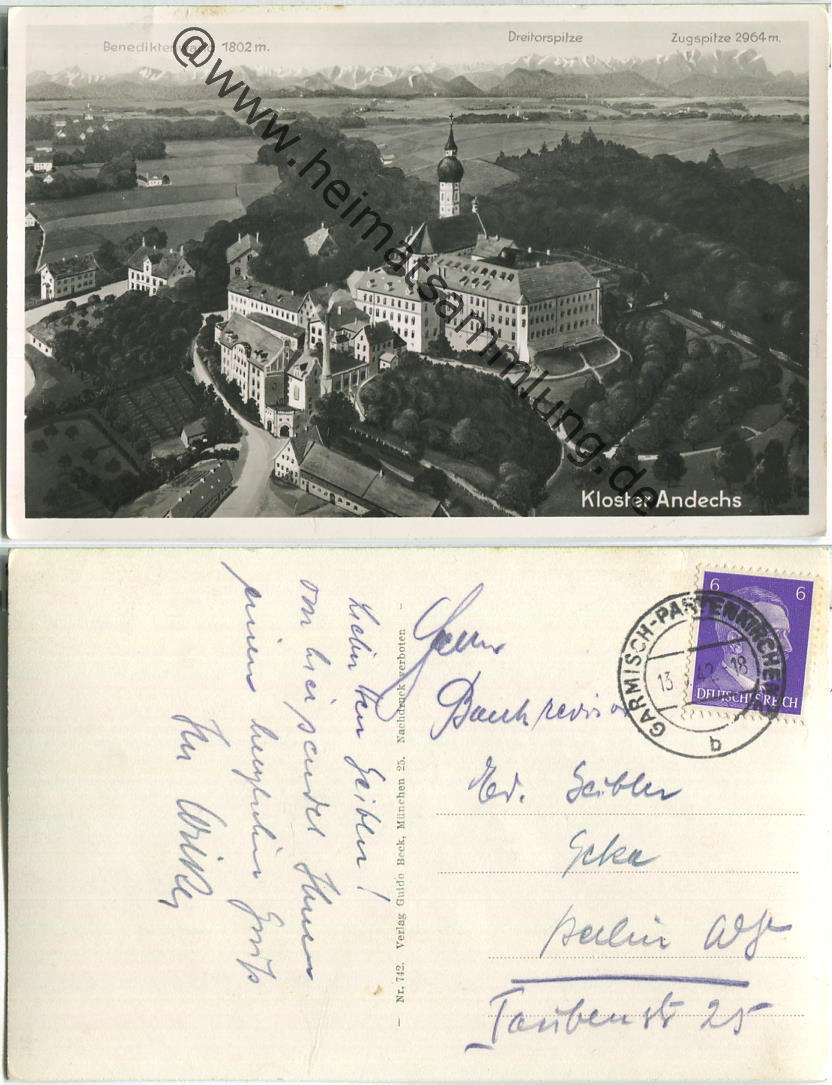 Benediktenwand 1802 m.
Dreitorspitze
Zugspitze 2964 m.
@www.heimatsammlung.de
Kloster Andechs
6 6
DEUTSCHES REICH
GARMISCH-PARTENKIRCHEN
13 42. 18
b
Lieber Herr Geibler!
von hier sendet Ihnen
einen herzlichen Gruß
Ihr
– Nr. 742. Verlag Guido Beck, München 25. Nachdruck verboten –
Herrn
Bankrevisor
Ed. Geibler
Berlin W 8
Taubenstr 25